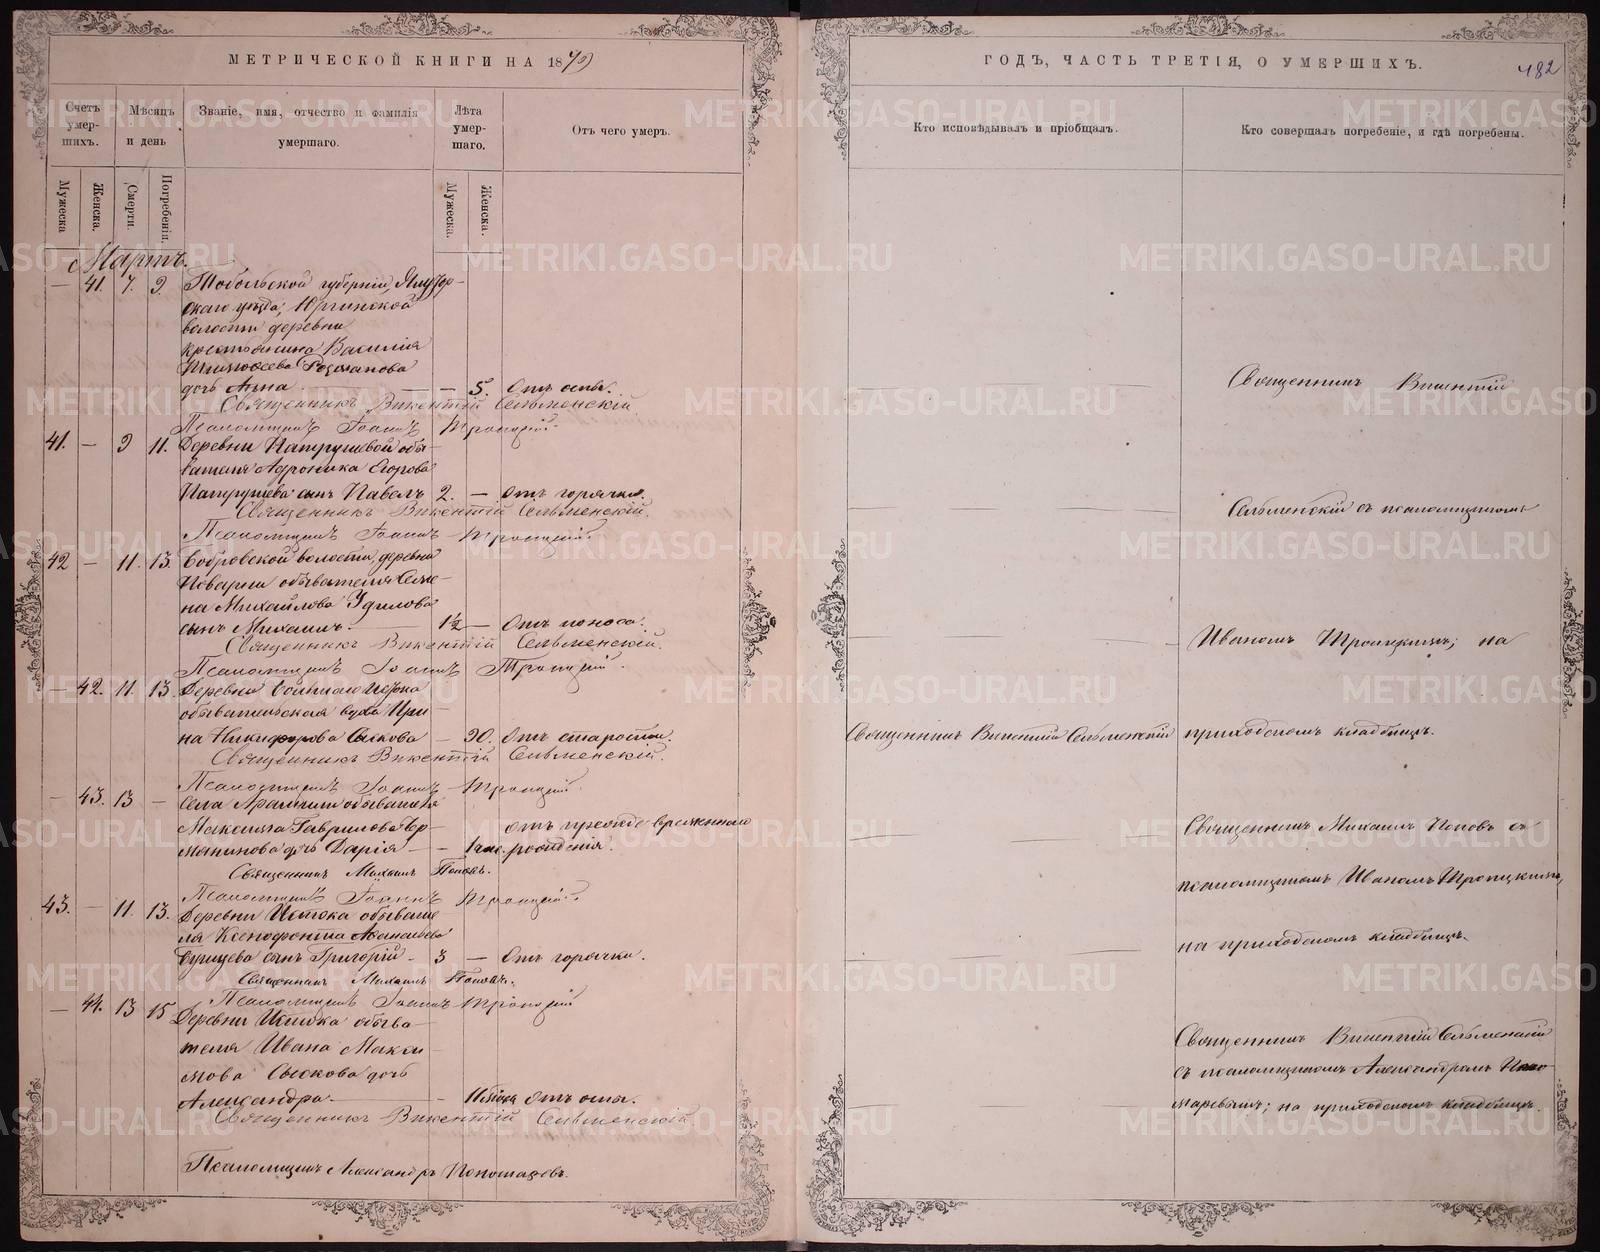 МЕТРИЧЕСКОЙ КНИГИ НА 1879
Счетъ умер-шихъ.
Мѣсяцъ и день
Званіе, имя, отчество и фамилія умершаго.
Лѣта умер-шаго.
Отъ чего умеръ.
Мужеска
Женска.
Смерти.
Погребенія.
Мужеска.
Женска.
Мартъ.
— 41. 7. 9. Тобольской губерніи, Ялутор-
скаго уѣзда, Юргинской
волости деревни
крестьянина Василія
Тимофеева
дочь Анна — — 5. Отъ оспы.
Священникъ Викентій Сельменскій.
Псаломщикъ Іоаннъ Троицкій.
41. — 9 11. Деревни Патрушевой обы-
вателя Адроника Егорова
Патрушева сынъ Павелъ 2. — Отъ горячки.
Священникъ Викентій Сельменскій.
Псаломщикъ Іоаннъ Троицкій.
42 — 11. 13. Бобровской волости, деревни
обывателя Семе-
на Михайлова
сынъ Михаилъ — 1½ — Отъ поноса.
Священникъ Викентій Сельменскій.
Псаломщикъ Іоаннъ Троицкій.
— 42. 11. 13. Деревни Большаго Истока
обывательская вдова Ири-
на Никифорова Сыскова — 90. Отъ старости.
Священникъ Викентій Сельменскій.
Псаломщикъ Іоаннъ Троицкій.
— 43. 13 — Села Арамили обывателя
Максима Гаврилова
дочь Дарія — — 1 час.
отъ преждевременнаго
рожденія.
Священникъ Михаилъ Поповъ.
Псаломщикъ Іоаннъ Троицкій.
43. — 11. 13. Деревни Истока обывате-
ля Ксенофонта Афанасьева
сынъ Григорій — 3 — Отъ горячки.
Священникъ Михаилъ Поповъ.
Псаломщикъ Іоаннъ Троицкій
— 44. 13 15 Деревни Истока обыва-
теля Ивана Макси-
мова Сыскова дочь
Александра — Отъ оспы.
Священникъ Викентій Сельменскій
Псаломщикъ Александръ Пономаревъ.
ГОДЪ, ЧАСТЬ ТРЕТІЯ, О УМЕРШИХЪ.
482
Кто исповѣдывалъ и пріобщалъ.
Кто совершалъ погребеніе, и гдѣ погребены.
Священникъ Викентій
Сельменскій съ псаломщикомъ
Иваномъ Троицкимъ; на
Священникъ Викентій Сельменскій
приходскомъ кладбищѣ.
Священникъ Михаилъ Поповъ съ
псаломщикомъ Иваномъ Троицкимъ,
на приходскомъ кладбищѣ.
Священникъ Викентій Сельменскій
съ псаломщикомъ Александромъ Поно-
маревымъ; на приходскомъ кладбищѣ.
METRIKI.GASO-URAL.RU